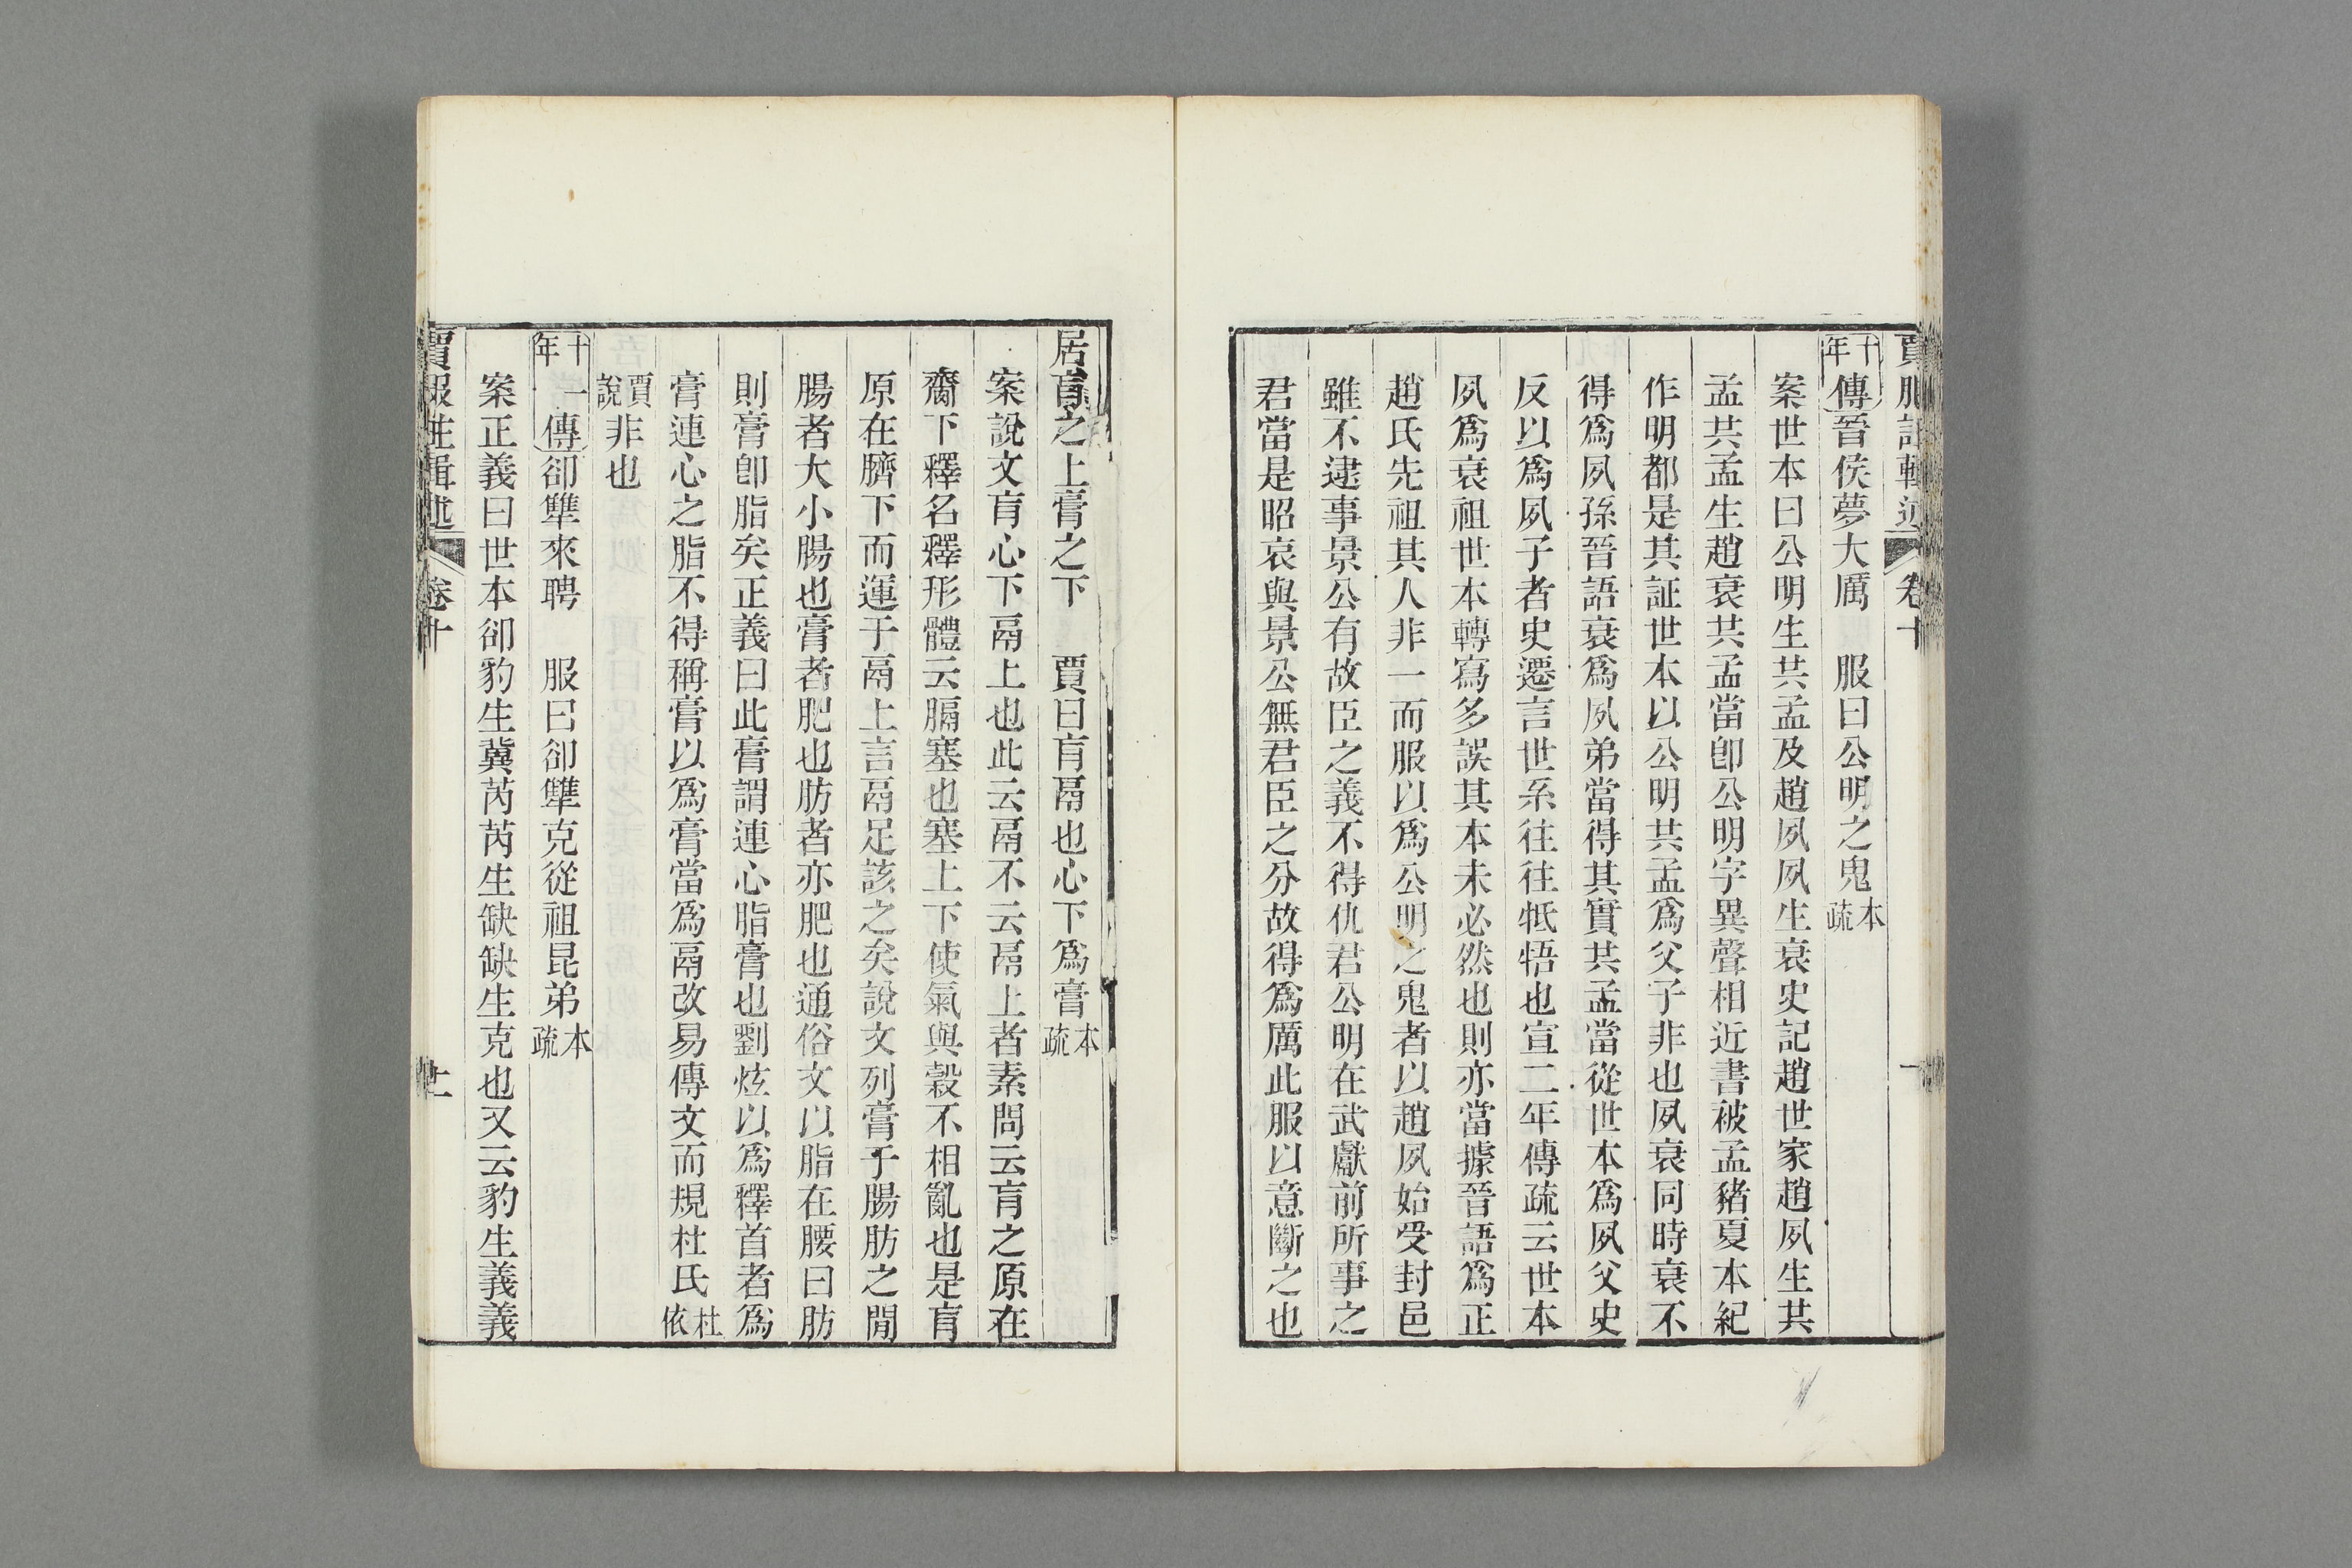 賈服註輯述 卷十
十年傳晉侯夢大厲 服曰公明之鬼本疏
案世本曰公明生共孟及趙夙夙生衰史記趙世家趙夙生共
孟共孟生趙衰共孟當卽公明字異聲相近書被孟豬夏本紀
作明都是其証世本以公明共孟爲父子非也夙衰同時衰不
得爲夙孫晉語衰爲夙弟當得其實共孟當從世本爲夙父史
反以爲夙子者史遷言世系往往牴牾也宣二年傳疏云世本
夙爲衰祖世本轉寫多誤其本未必然也則亦當據晉語爲正
趙氏先祖其人非一而服以爲公明之鬼者以趙夙始受封邑
雖不逮事景公有故臣之義不得仇君公明在武獻前所事之
君當是昭哀與景公無君臣之分故得爲厲此服以意斷之也
居肓之上膏之下 賈曰肓鬲也心下爲膏本疏
案說文肓心下鬲上也此云鬲不云鬲上者素問云肓之原在
齎下釋名釋形體云膈塞也塞上下使氣與穀不相亂也是肓
原在臍下而運于鬲上言鬲足該之矣說文列膏于腸肪之閒
腸者大小腸也膏者肥也肪者亦肥也通俗文以脂在腰曰肪
則膏卽脂矣正義曰此膏謂連心脂膏也劉炫以爲釋首者爲
膏連心之脂不得稱膏以爲膏當爲鬲改易傳文而規杜氏杜依
賈說非也
十一年傳郤犨來聘 服曰郤犨克從祖昆弟本疏
案正義曰世本郤豹生冀芮芮生缺缺生克也又云豹生義義
賈服注輯述 卷十